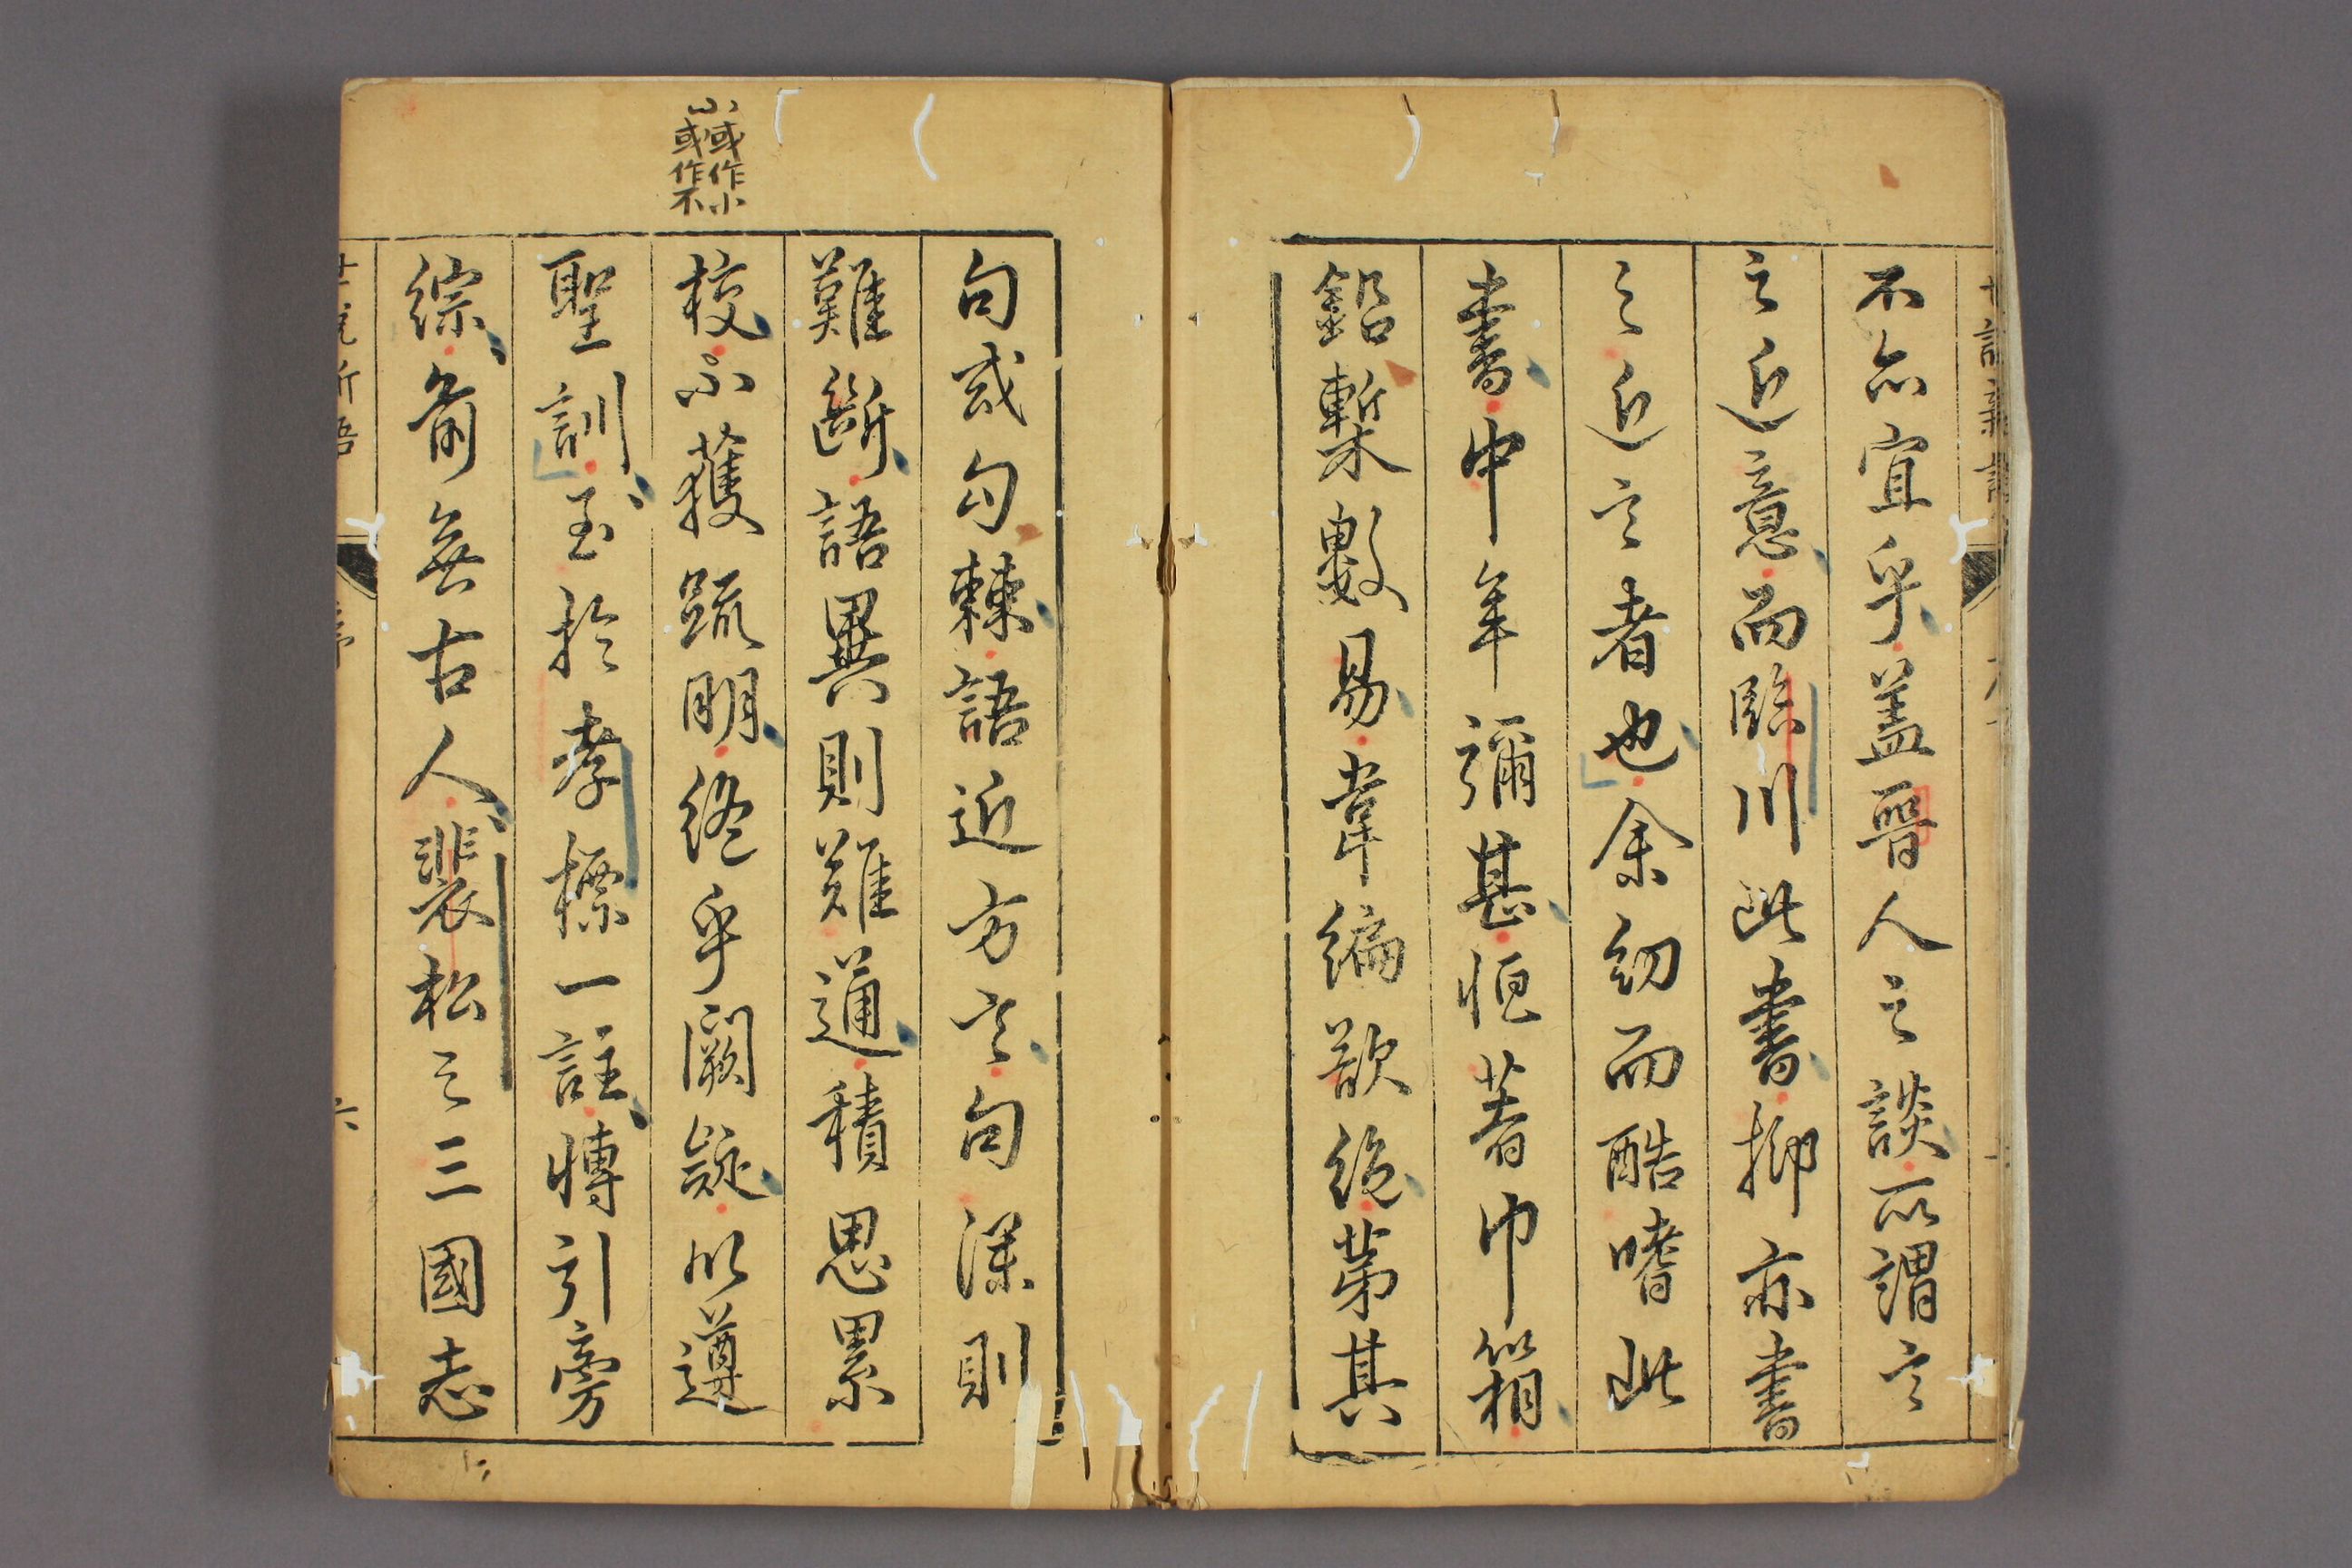 不亦宜乎蓋晉人之談所謂言
之近意而臨川此書抑亦書
之近言者也余幼而酷嗜此
書中年彌甚恒著巾箱
鉛槧數易韋編欲絕第其
句或勾棘語近方言句深則
難斷語異則難通積思累
校小獲疏明終乎闕疑以遵
聖訓至於孝標一註博引旁
綜前無古人裴松之三國志
小或作小
或作不
世說新語
六